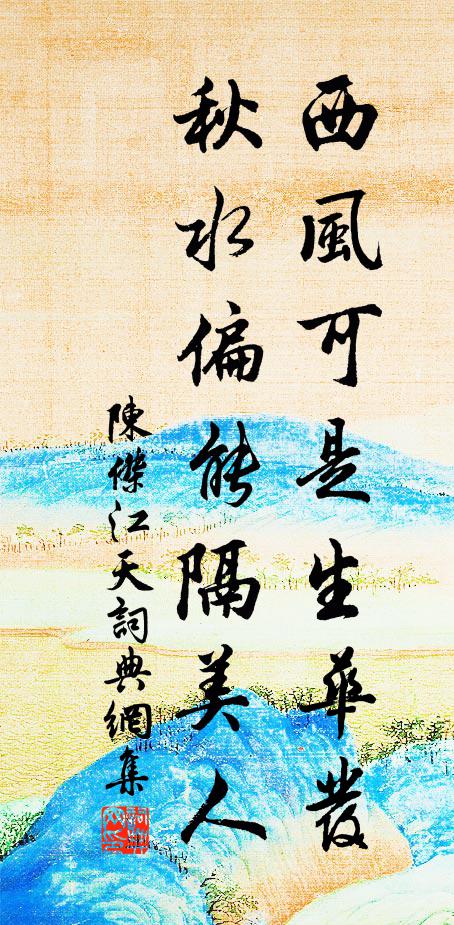 西風可是生華發
秋水偏能隔美人
陳傑江天詞典網集